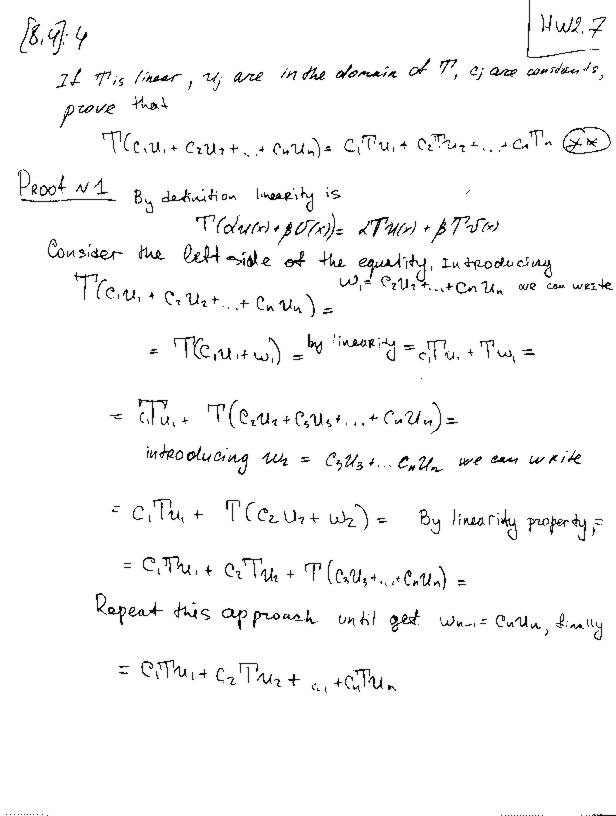 [8,9]: 4
HW2.7
If T is linear, uj are in the domain of T, cj are constants,
prove that
T(c1u1 + c2u2 + ... + cnun) = c1Tu1 + c2Tu2 + ... + cnTn (**)
PROOF N1 By definition linearity is
T(αu(x) + βv(x)) = αTu(x) + βTv(x)
Consider the left side of the equality. Introducing
w1 = c2u2 + ... + cnun we can write
T(c1u1 + c2u2 + ... + cnun) =
= T(c1u1 + w1) = by linearity = c1Tu1 + Tw1 =
= c1Tu1 + T(c2u2 + c3u3 + ... + cnun) =
introducing w2 = c3u3 + ... cnun we can write
= c1Tu1 + T(c2u2 + w2) = By linearity property, =
= c1Tu1 + c2Tu2 + T(c3u3 + ... + cnun) =
Repeat this approach until get wn-1 = cnun, finally
= c1Tu1 + c2Tu2 + ... + cnTun